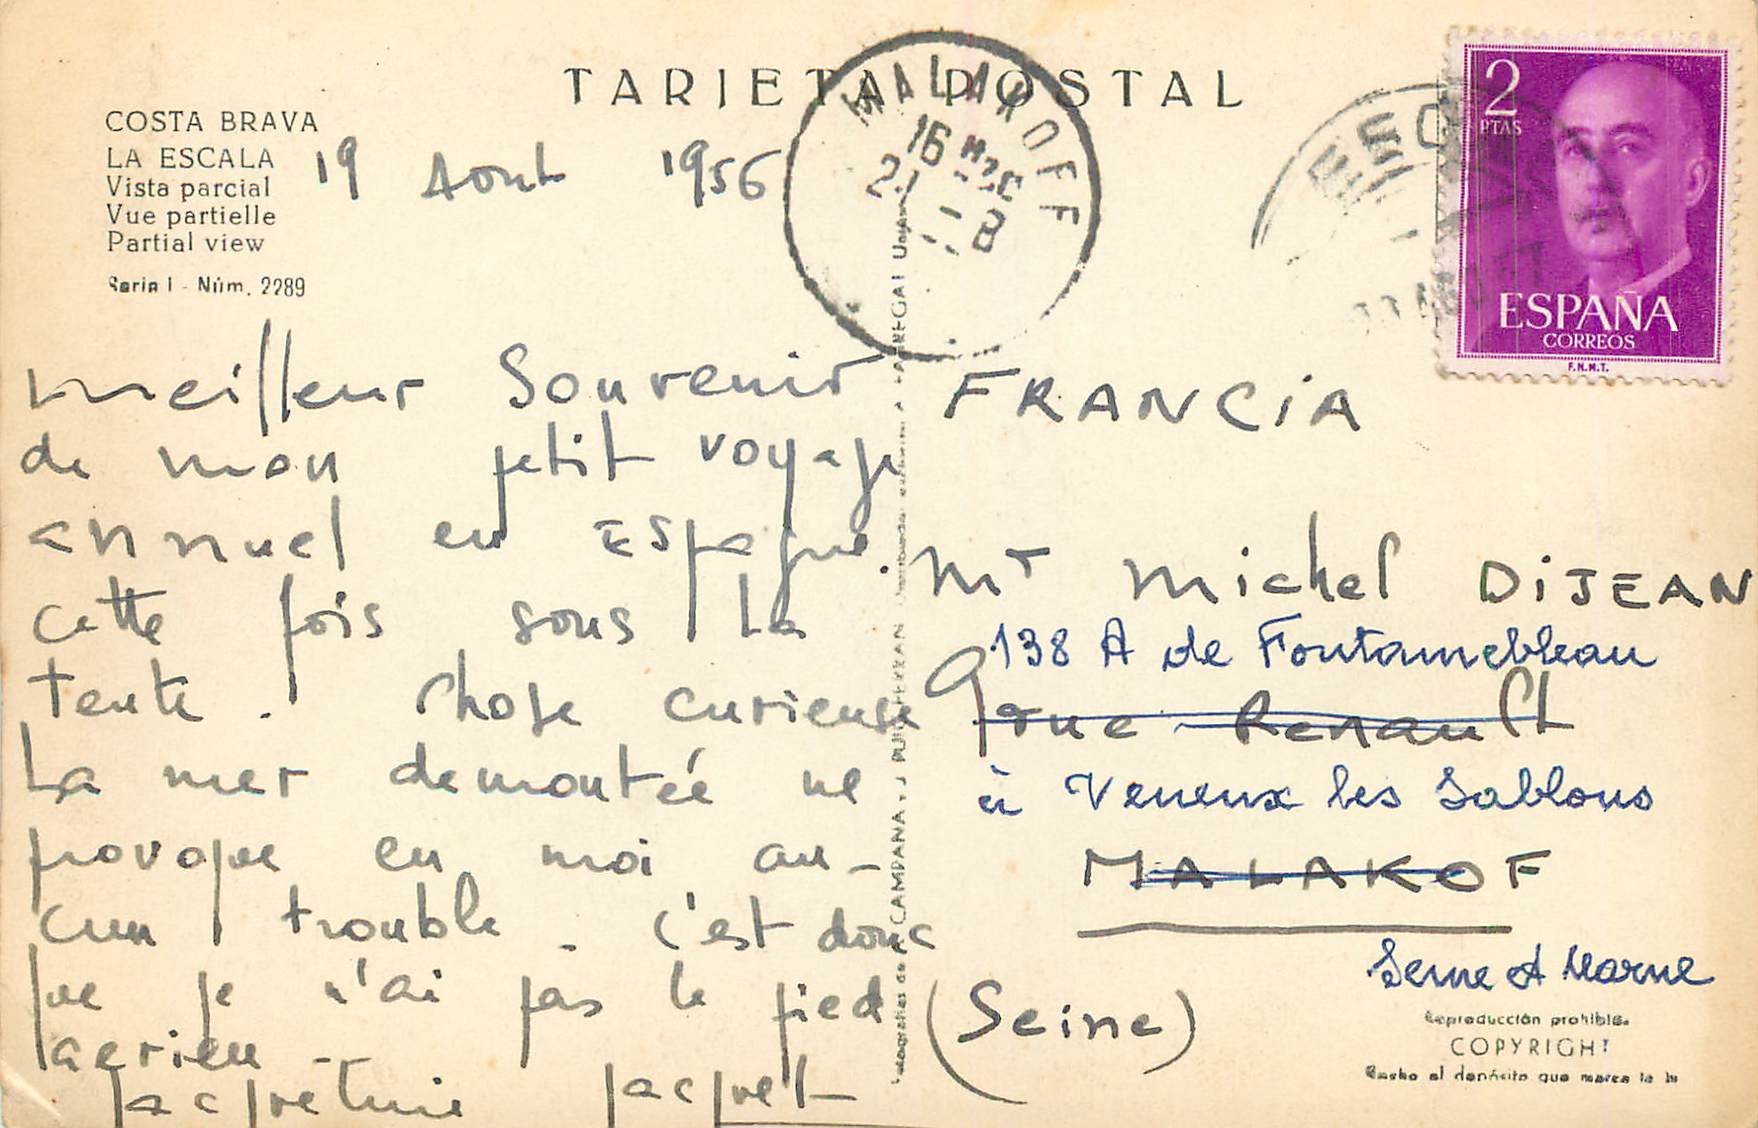 TARJETA POSTAL
COSTA BRAVA
LA ESCALA
Vista parcial
Vue partielle
Partial view
Serie I - Núm. 2289
19 Aout 1956
meilleur Souvenir
de mon petit voyage
annuel en Espagne.
cette fois sous la
tente. chose curieuse
La mer demontée ne
provoque en moi au-
cun trouble. c'est donc
que je n'ai pas le pied
aerien -
jacquetine jacquet
MALAKOFF
16 H30
21 - 8
2
PTAS
ESPAÑA
CORREOS
F.N.M.T.
FRANCiA
Mr Michel DiJEAN
138 A de Fontainebleau
9 rue Renault
à Veneux les Sablons
MALAKOF
Seine et Marne
(Seine)
Reproducción prohibida
COPYRIGHT
Hecho el depósito que marca la ley